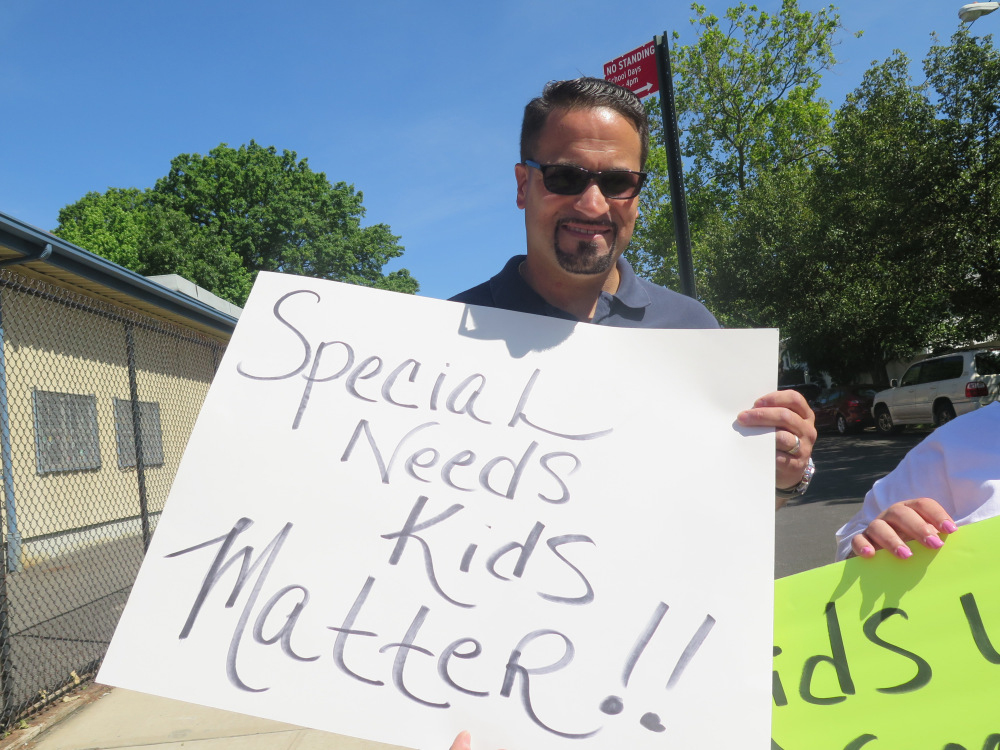 NO STANDING
School Days
4pm
Special
Needs
Kids
Matter!!
ids